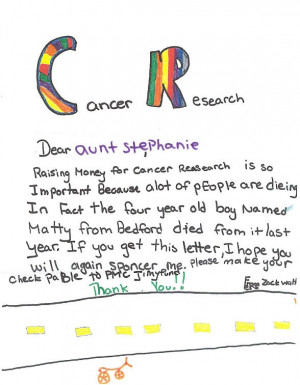 Cancer Research
Dear aunt stephanie
Raising Money for Cancer Reasearch is so
Important Because alot of pEople are dieing
In Fact the four year old boy Named
Matty from Bedford died from it last
Year. If you get this letter, I hope you
will again sponcer me. Please make your
Check Pable to PMC Jimyfund
Thank You!! From Zack